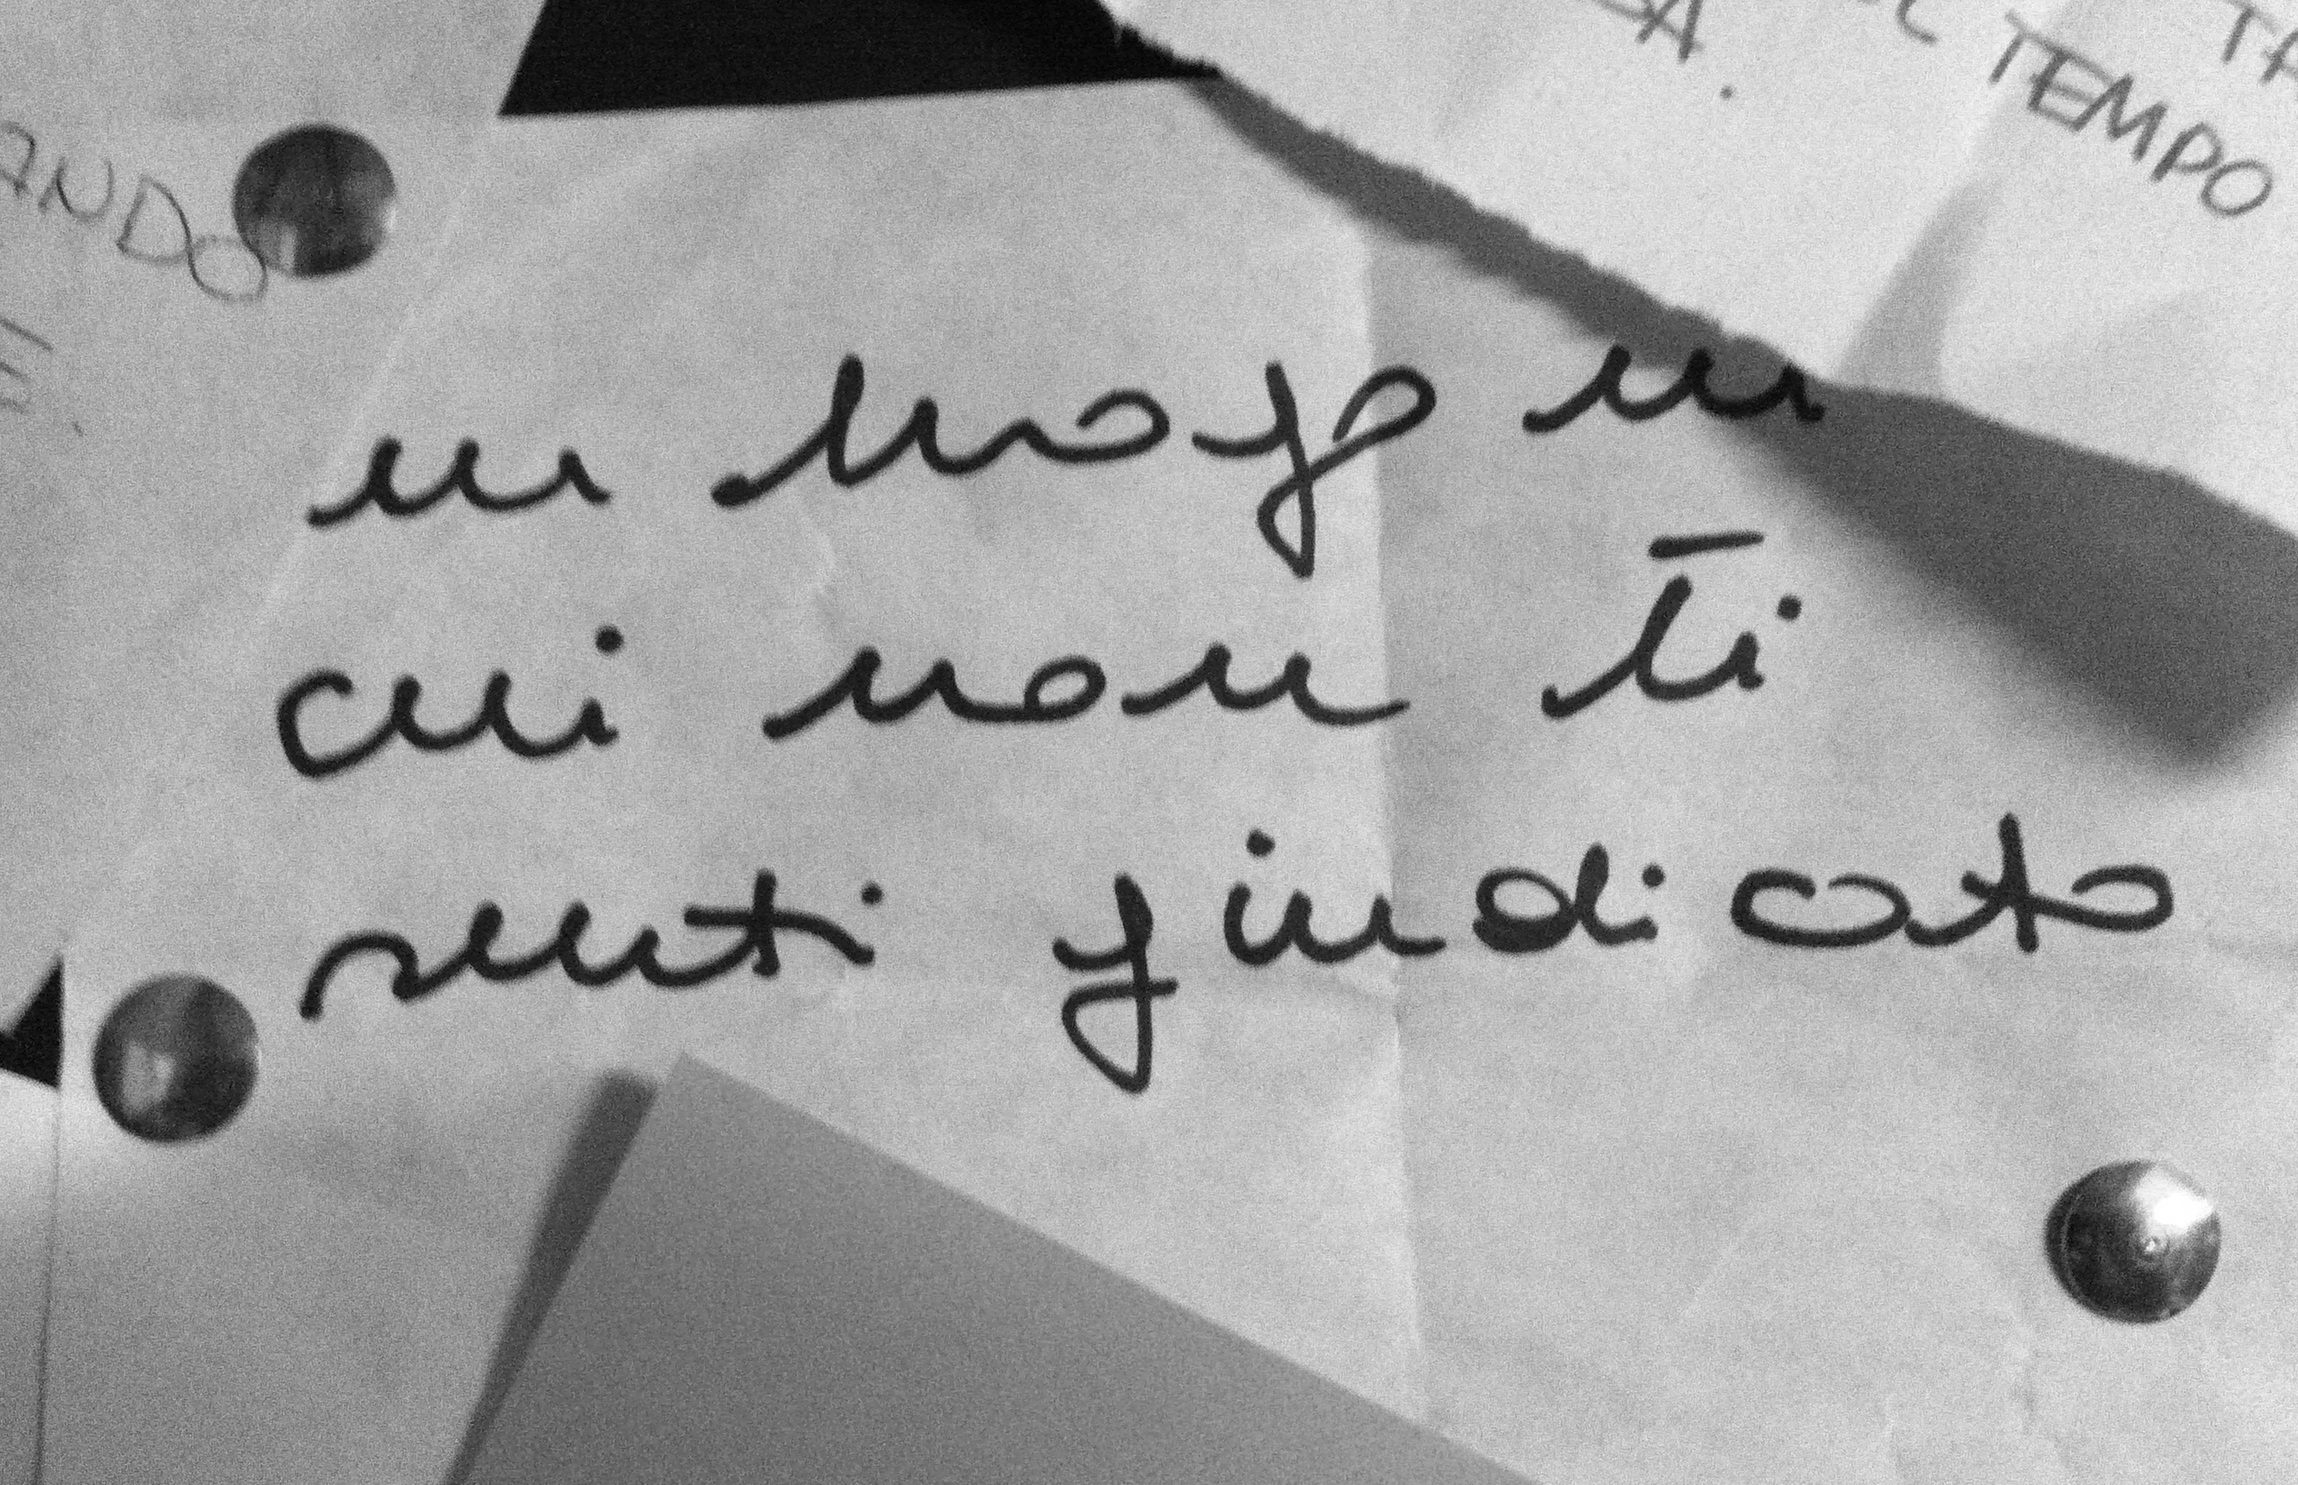 TEMPO
ANDO
un luogo in
cui non ti
senti giudicato